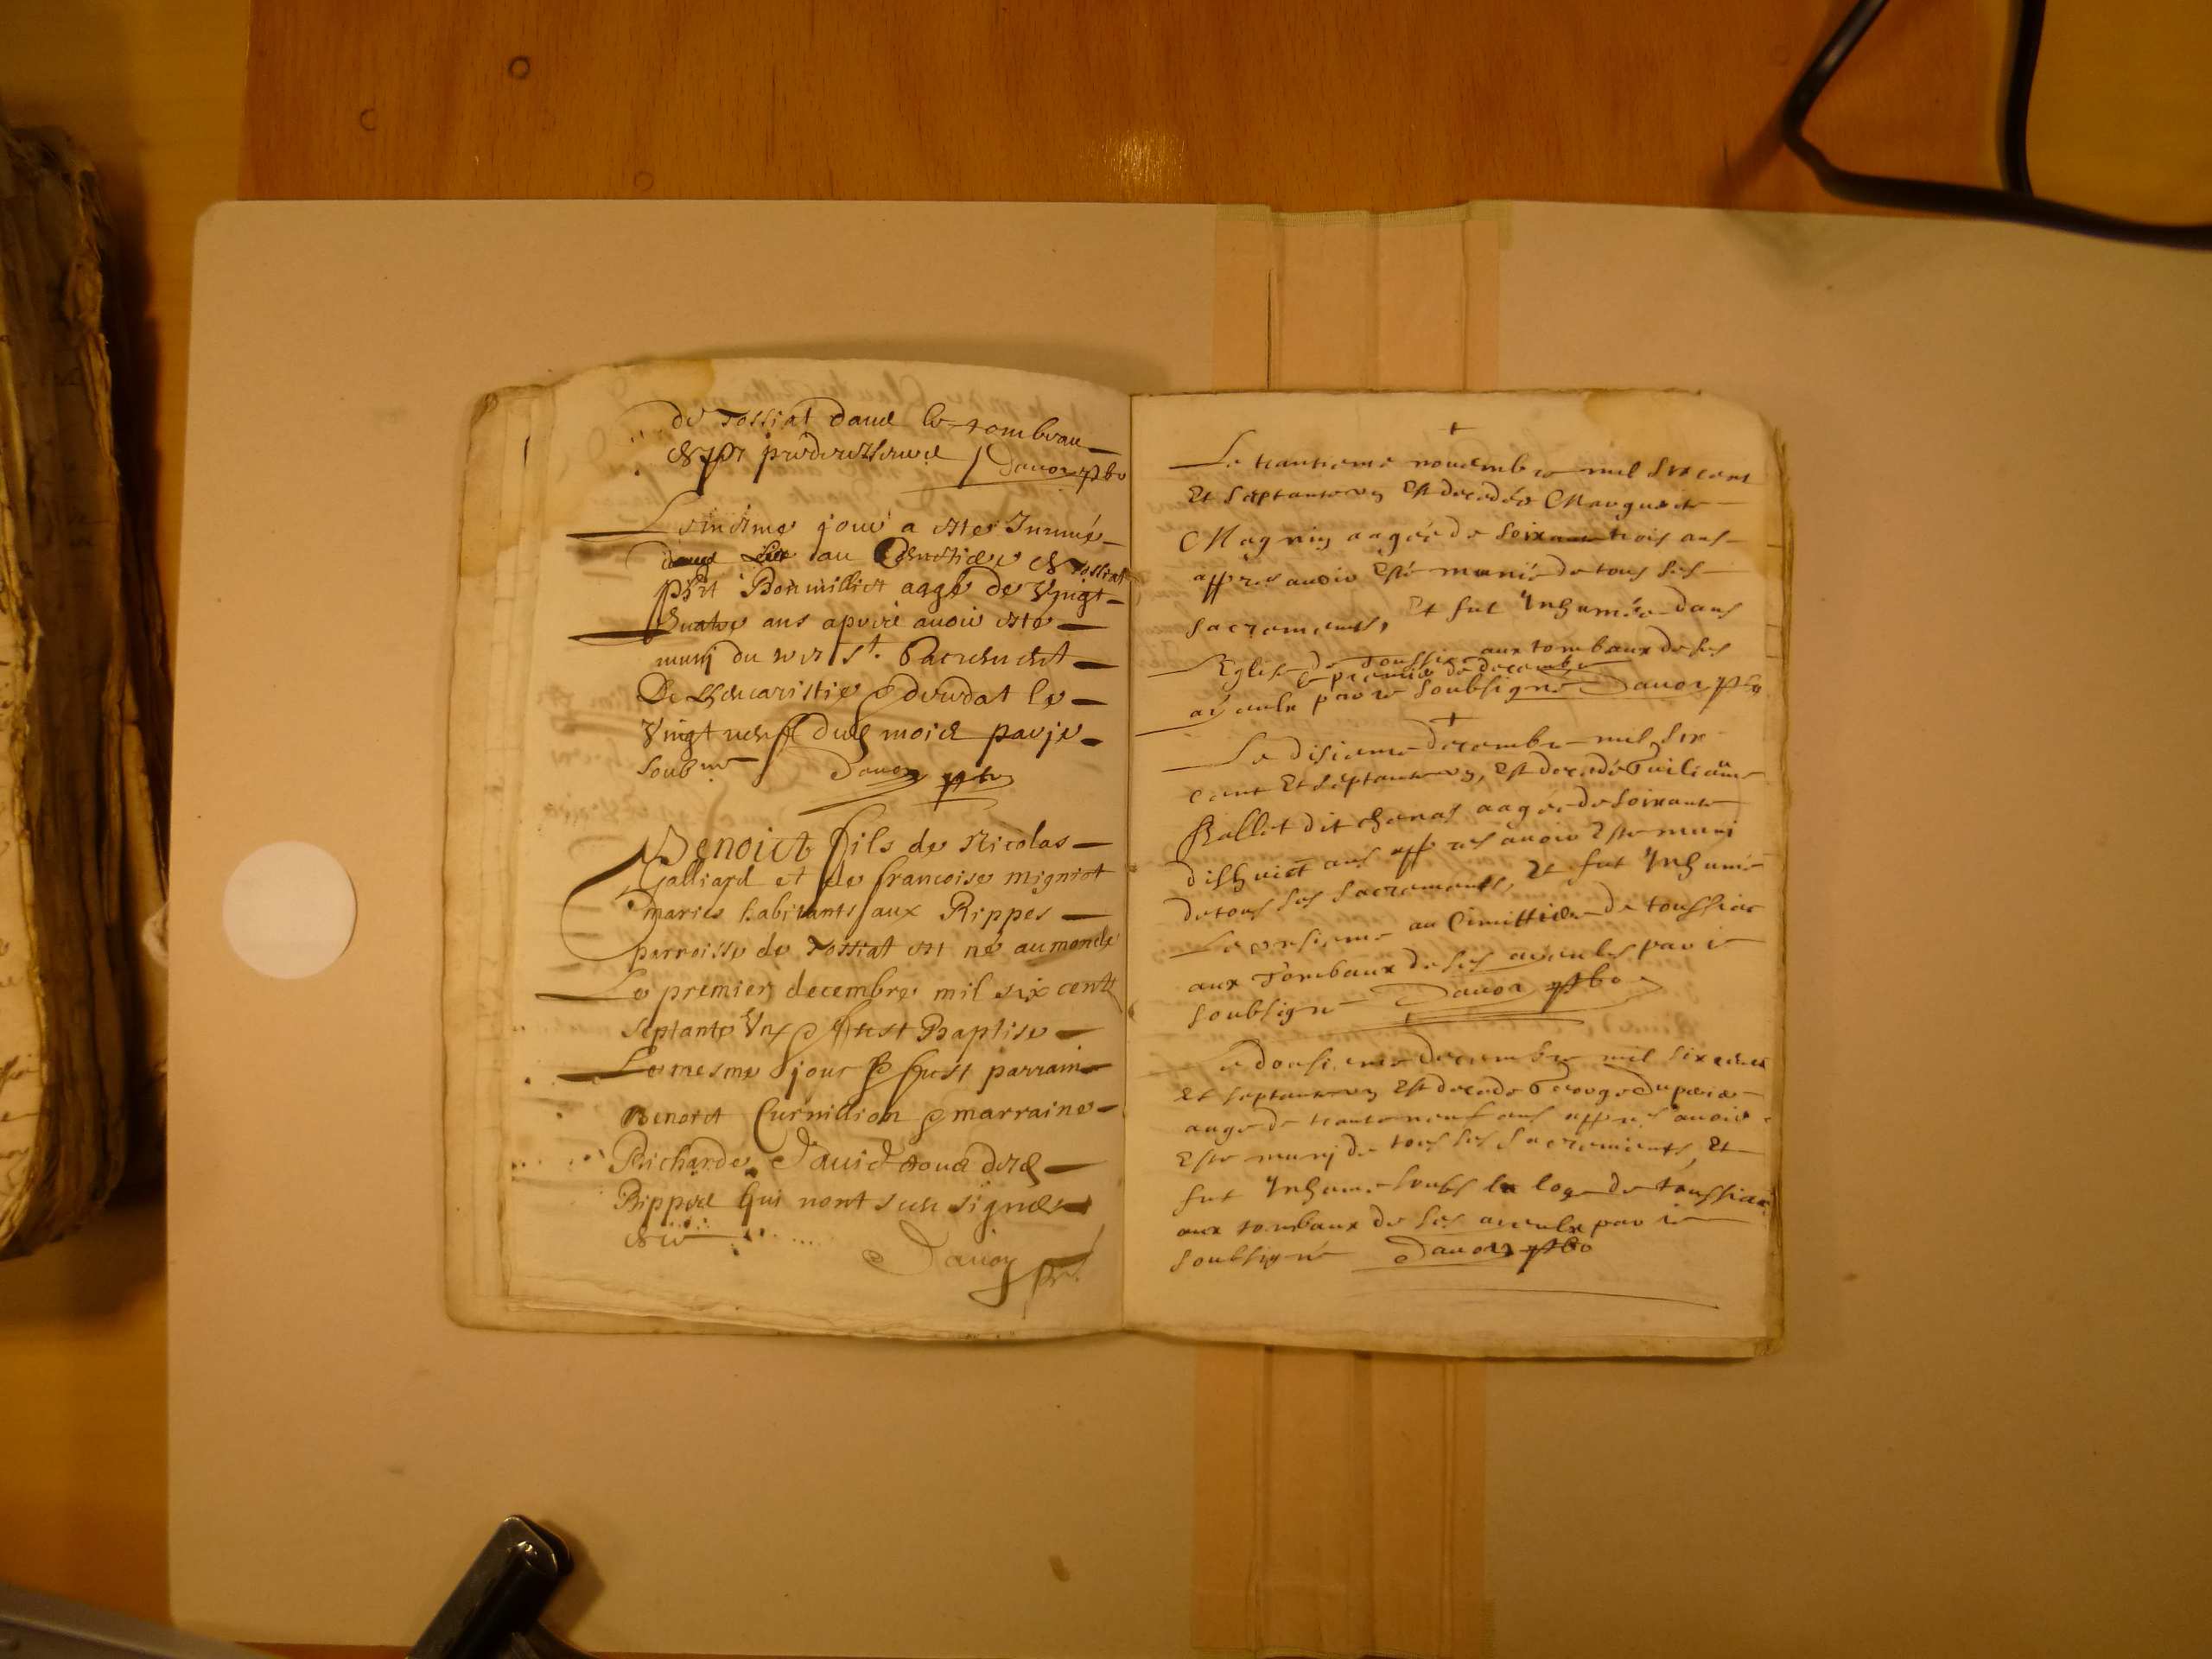 de Tossiat dans le tombeau
de ses predecesseurs Dauon pbr
Le sixime jour a este Inumé
dans au Cemetiere de Tossiat
Bonmilliet aagé de Vingt
quatre ans apres auoir este
muni du tres St. Sacrement
De Leucaristie decedat le
Vingt neuf dud mois par je
soubne Dauon pbr
Benoict fils de Nicolas
Galliard et de francoise migniot
maries habitants aux Rippes
parroisse de Tossiat est né au monde
Le premier decembre mil six cents
septante Vn & fust Baptise
Le mesme jour & fust parrain
Benoict Curnillion & marraine
Richarde Dauid tous des
Rippes qui nont sceu signer
Dauon pbr
Le trantieme nouembre mil six cent
Et septante vn Est decedée Marguerite
Magnin aagée de soixante trois ans
appres auoir Esté munie de tous ses
sacrements, Et fut Inhumée dans
LEglise de Toussia aux tombaux de ses
le premier de decembre
ayeulx par ie soubsigné Dauon pbr
Le disieme decembre mil six
cent Et septante vn, Est decedé Guiliaume
Ballet dit chanas aagé de soixante
dishuict ans appres auoir Este muni
de tous ses sacrements, Et fut Inhumé
Le onsieme au Cimittiere de toussiac
aux Tombaux de ses ayeules par ie
soubsigné Dauon pbr
Le dousieme decembre mil six cent
Et septante vn Est decede George Duperier
auge de trante neuf ans appres auoir
Este muni de tous ses sacrements, Et
fut Inhume soubs la loge de toussiac
aux tombaux de ses ayeulx par ie
soubsigné Dauon pbr